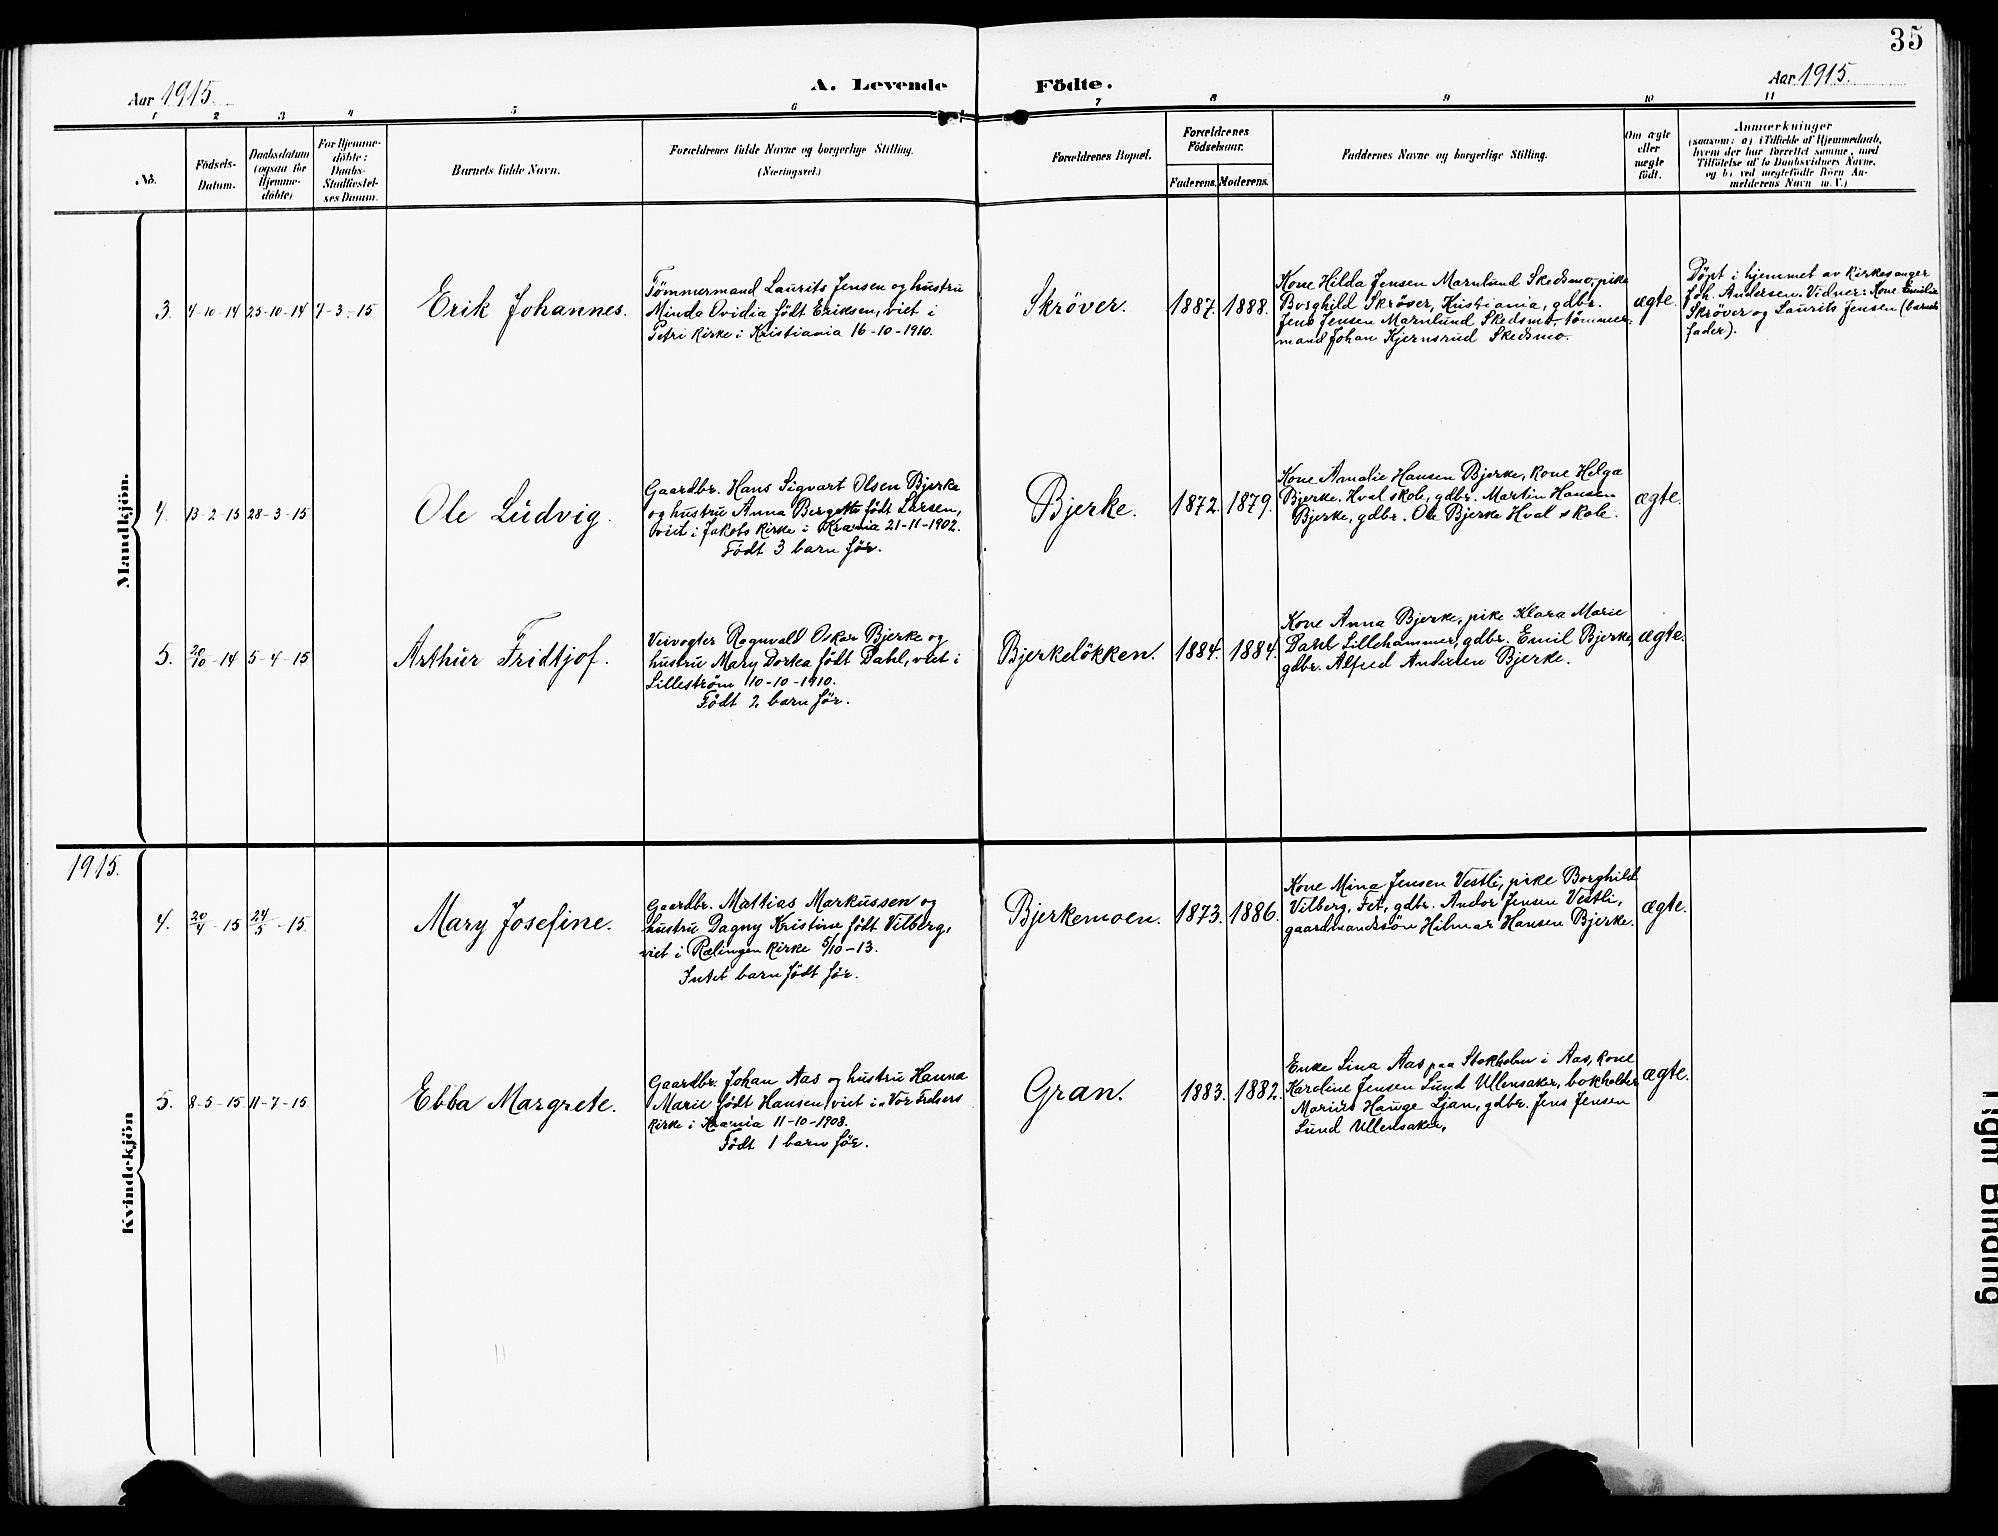 35
Aar 1915.
A. Levende
Födte.
Aar 1915.
1 2 3 4 5 6 7 8 9 10 11
No.
Födsels-
Datum.
Daabsdatum
(ogsaa for
Hjemme-
döbte)
For Hjemme-
döbte:
Daabs-
Stadfæstel-
ses Datum.
Barnets fulde Navn.
Forældrenes fulde Navne og borgerlige Stilling.
(Næringsvei.)
Forældrenes Bopæl.
Forældrenes
Födselsaar.
Faderens. Moderens.
Faddernes Navne og borgerlige Stilling.
Om ægte
eller
uægte
födt.
Anmærkninger
(saasom: a) i Tilfælde af Hjemmedaab,
hvem der har forrettet samme, med
Tilföielse af to Daabsvidners Navne,
og b) ved uegtefödte Börn An-
melderens Navn m. V.)
Mandkjön.
3. 4-10-14 25-10-14 7-3-15
Erik Johannes.
Tömmermand Laurits Jensen og hustru
Minda Ovidia født Eriksen, viet i
Petri kirke i Kristiania 16-10-1910.
Skröver.
1887. 1888.
Kone Hilda Jensen Marnlund Skedsmo, pike
Borghild Skröver, Kristiania, gdbr.
Jens Jensen Marnlund Skedsmo, tömmer-
mand Johan Kjernsrud Skedsmo.
ægte.
Döpt i hjemmet av kirkesanger
Joh. Andersen. Vidner: Kone Emilie
Skröver og Laurits Jensen (barnets
fader).
4. 13-2-15 28-3-15
Ole Ludvig.
Gaardbr. Hans Sigvart Olsen Bjerke
og hustru Anna Bergette født Larsen,
viet i Jakobs kirke i Krania 21-11-1902.
Født 3 barn før.
Bjerke.
1872. 1879.
Kone Amalie Hansen Bjerke, kone Helga
Bjerke, Hval skole, gdbr. Martin Hansen
Bjerke, gdbr. Ole Bjerke Hval skole.
ægte.
5. 20/10-14 5-4-15
Arthur Fridtjof.
Veivogter Ragnvald Oskar Bjerke og
hustru Mary Dortea født Dahl, viet i
Lilleström 10-10-1910.
Født 2 barn før.
Bjerkelökken.
1884. 1884.
Kone Anna Bjerke, pike Klara Marie
Dahl Lillehammer, gdbr. Emil Bjerke,
gdbr. Alfred Andersen Bjerke.
ægte.
1915.
Kvindekjön
4. 20/4-15 24/5-15.
Mary Josefine.
Gaardbr. Mattias Markussen og
hustru Dagny Kristine født Vilberg,
viet i Rælingen kirke 5/10-13.
Intet barn født før.
Bjerkemoen.
1873. 1886.
Kone Mina Jensen Vestli, pike Borghild
Vilberg, Fet, gdbr. Andor Jensen Vestli,
gaardmandssön Hilmar Hansen Bjerke.
ægte.
5. 8-5-15 11-7-15.
Ebba Margrete.
Gaardbr. Johan Aas og hustru Hanna
Marie født Hansen, viet i Vor Frelsers
kirke i Krania 11-10-1908.
Født 1 barn før.
Gran.
1883. 1882.
Enke Lina Aas paa Stokholen i Aas, kone
Karoline Jensen Lund Ullensaker, bokholder
Marius Hauge Ljan, gdbr. Jens Jensen
Lund Ullensaker,
ægte.
Tight Binding